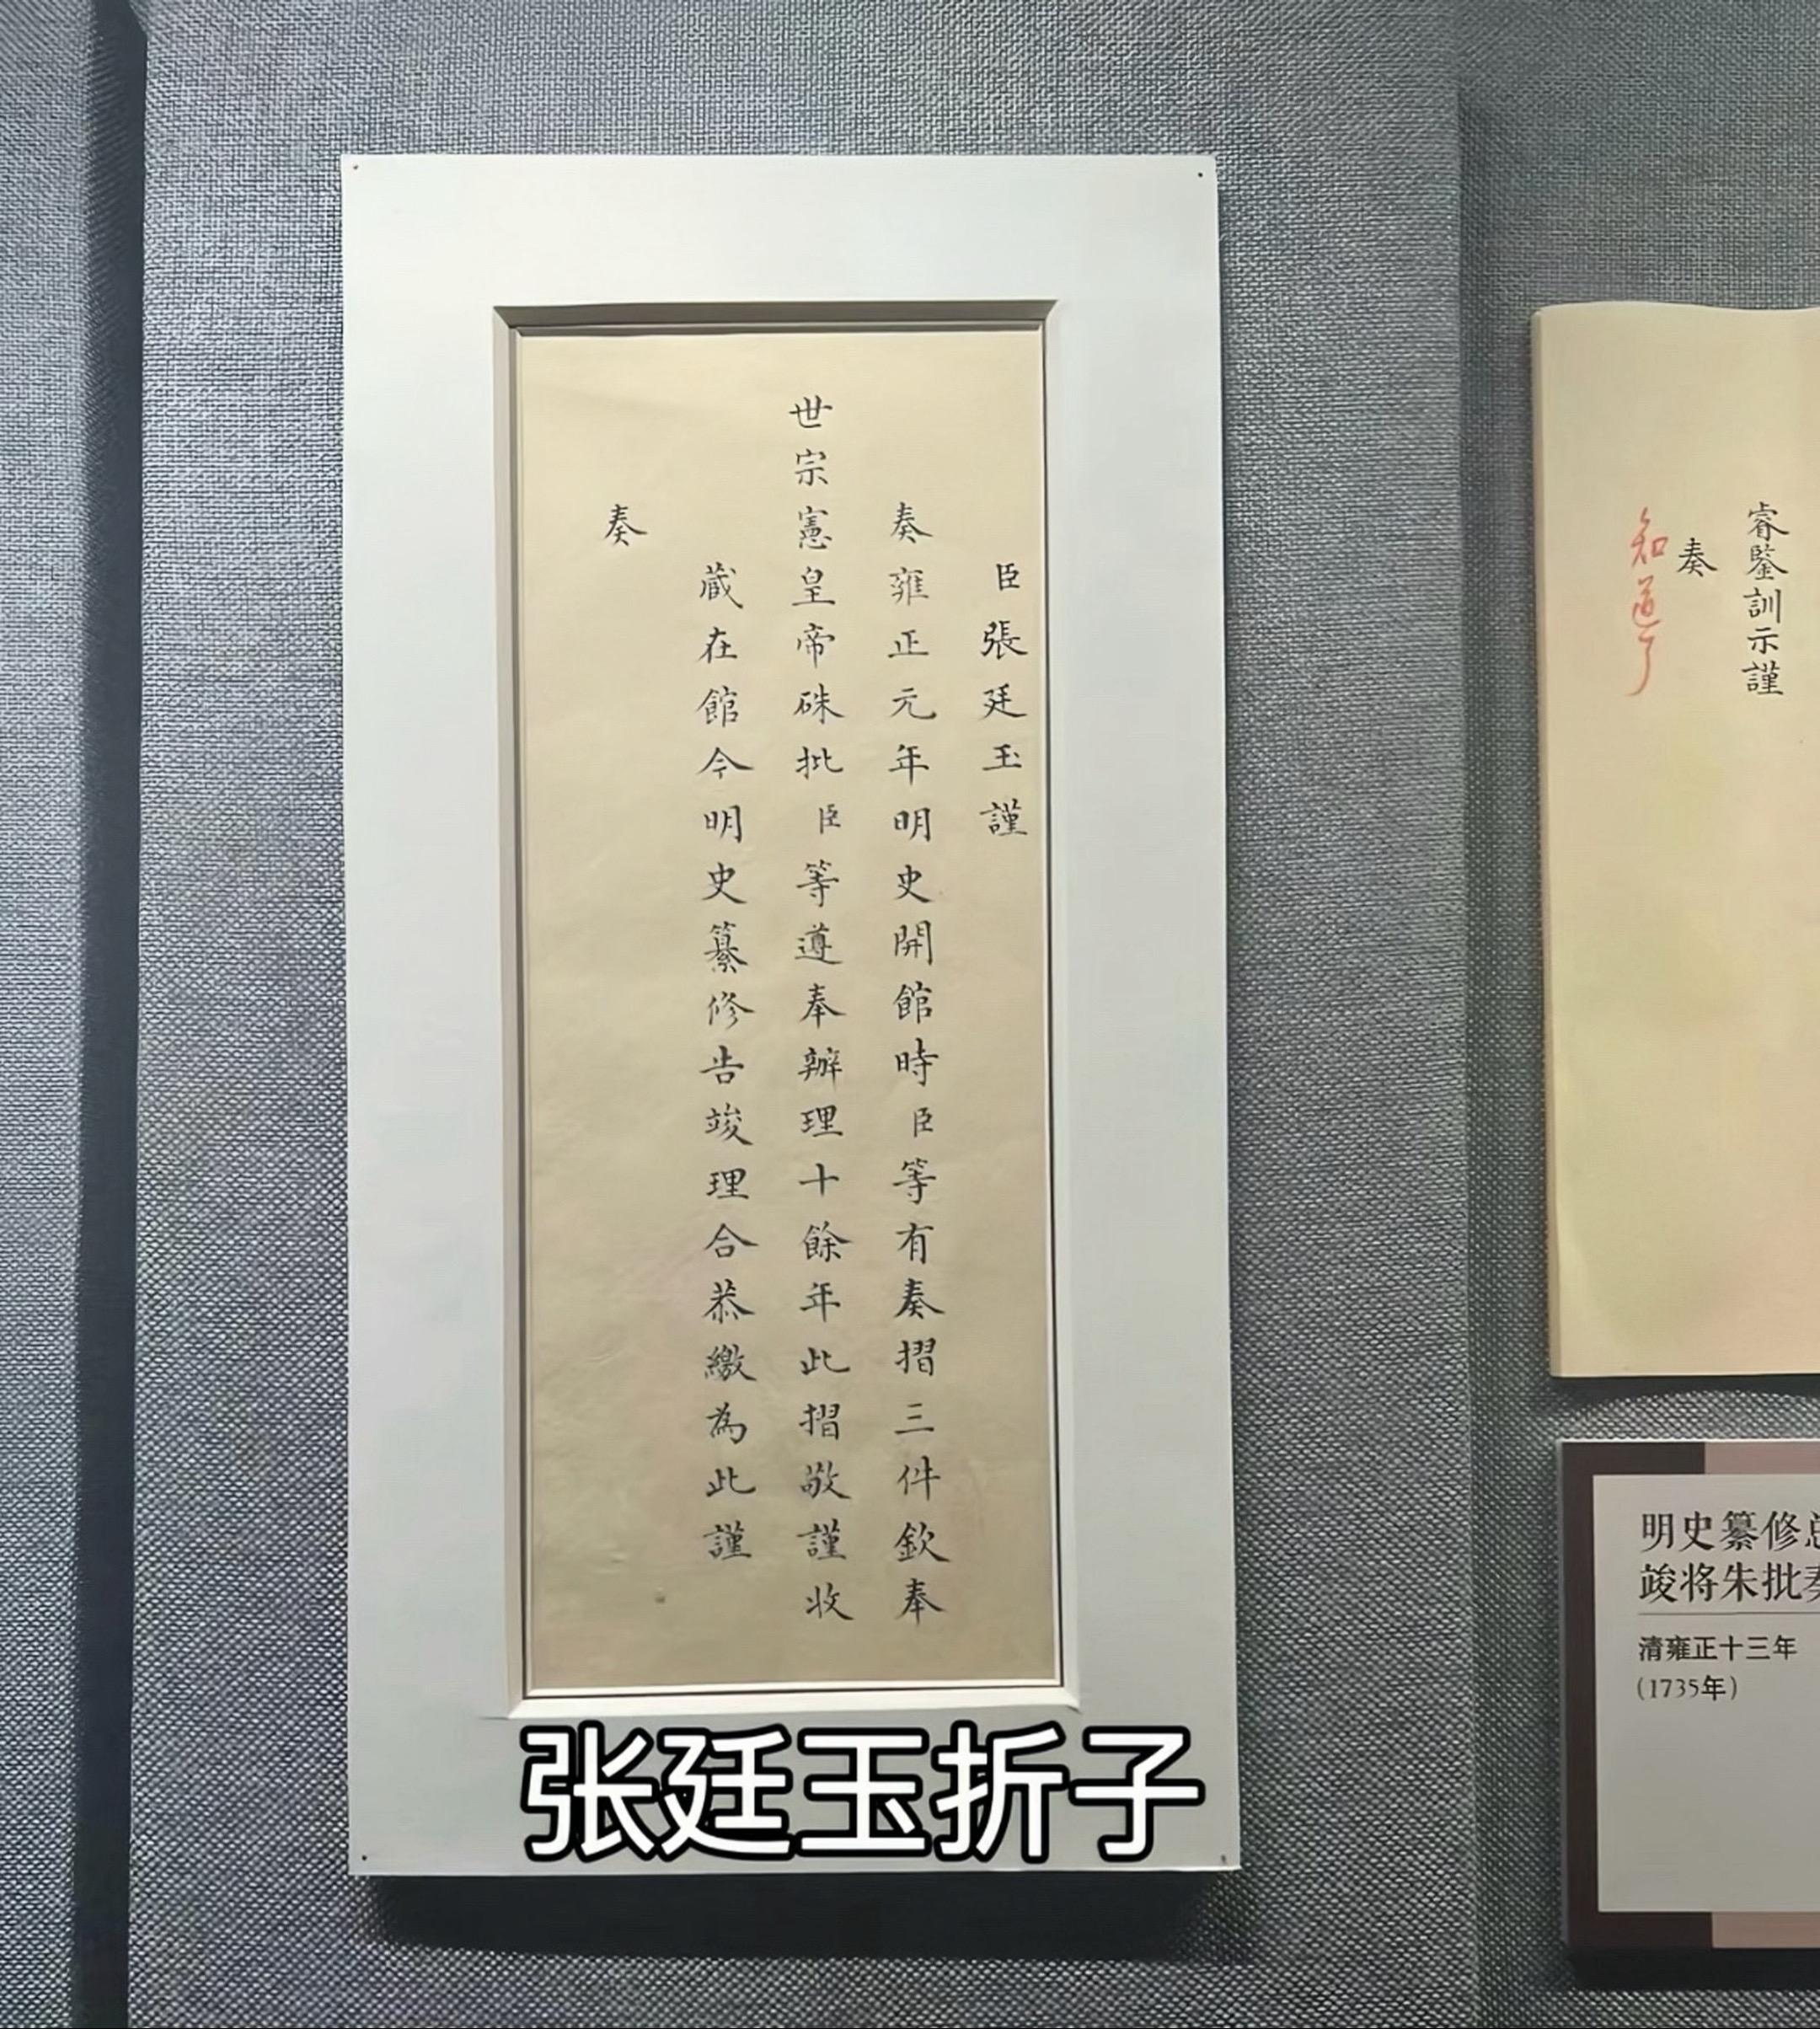 臣張廷玉謹
奏雍正元年明史開館時臣等有奏摺三件欽奉
世宗憲皇帝硃批臣等遵奉辦理十餘年此摺敬謹收
蔵在館今明史纂修告竣理合恭繳為此謹
奏
睿鑒訓示謹
奏
知道了
明史纂修总
竣将朱批奏
清雍正十三年
(1735年)
张廷玉折子